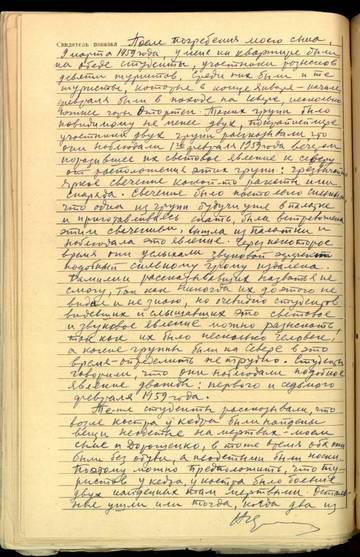 Свидетель показал После погребения моего сына,
9 марта 1959 года, у меня на квартире были
на обеде студенты, участники розысков
девяти туристов. Среди них были и те
туристы, которые в конце января – начале
февраля были в походе на севере, несколько
южнее горы Отортен. Таких групп было
по-видимому не менее двух, по крайней мере
участники двух групп рассказывали, что
они наблюдали 1го февраля 1959 года вечером
поразившее их световое явление к северу
от расположения этих групп: чрезвычайно
яркое свечение какой-то ракеты или
снаряда. Свечение было настолько сильным
что одна из групп будучи уже в палатке
и приготавливаясь спать, была встревожена
этим свечением, вышла из палатки и
наблюдала это явление. Через некоторое
время они услышали звуковой эффект
подобный сильному грому издалека.
Фамилии рассказавших назвать не
смогу, так как никогда их до этого не
видел и не знаю, но очевидно студентов
видевших и слышавших это световое
и звуковое явление можно разыскать,
так как их было несколько человек,
а какие группы были на севере в это
время – определить не трудно. Студенты
говорили, что они наблюдали подобное
явление дважды: первого и седьмого
февраля 1959 года.
Те же студенты рассказывали, что
возле костра у кедра были найдены
вещи не одетые на мертвых – моем
сыне и Дорошенко, в то же время оба они
были без обуви, а не одетыми были носки.
Поэтому можно предположить, что ту-
ристов у кедра, у костра было больше
двух найденных там мертвыми. Осталь-
ные ушли или тогда, когда два из